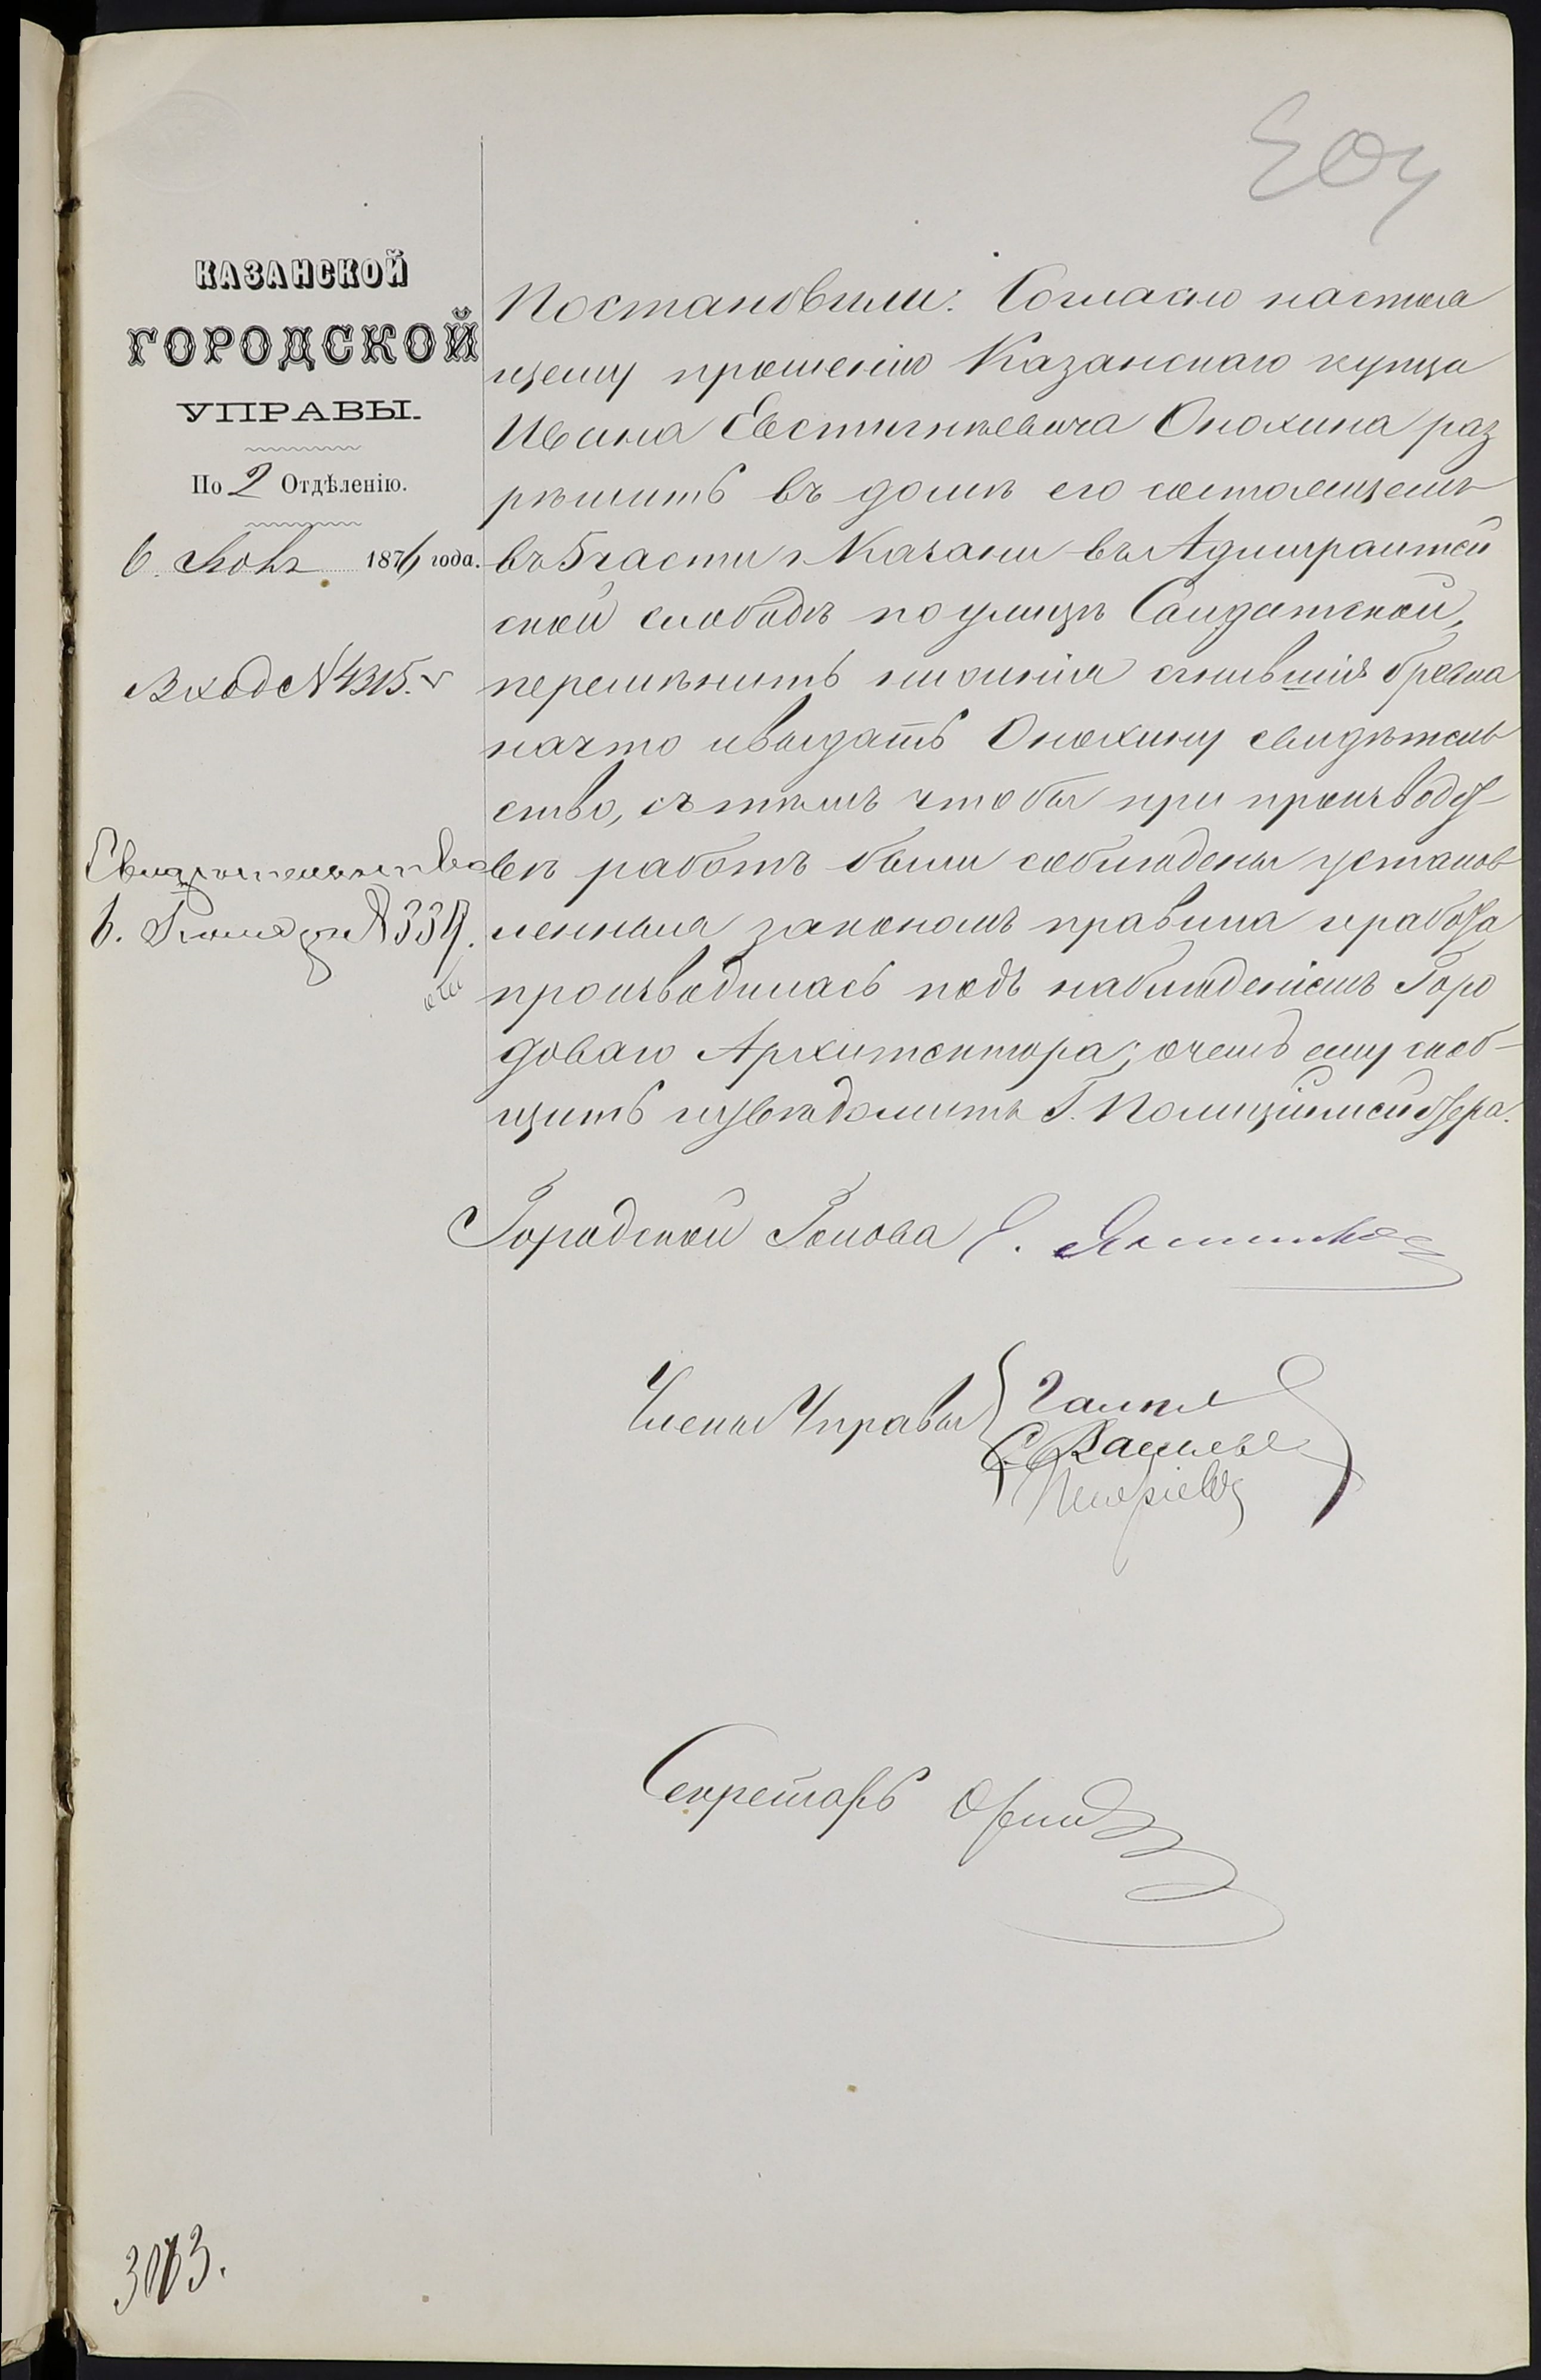 КАЗАНСКОЙ
ГОРОДСКОЙ
УПРАВЫ.
По 2 Отдѣленію.
6. 1876 года.
Вход № 4315.
Свидѣтельство
6. № 339.
Постановили: Согласно настоя
щему прошенію Казанскаго купца
Ивана Евстигнѣевича Онохина раз
рѣшить въ домѣ его состоящемъ
въ 5 части г. Казани въ Адмиралтей
ской слободѣ по улицѣ Солдатской,
перемѣнить сгнившія бревна
на что и выдать Онохину свидѣтель
ство, съ тѣмъ чтобы при производст-
вѣ работъ были соблюдены установ
ленныя закономъ правила и работа
производилась подъ наблюденіемъ Горо
доваго Архитектора; о чемъ ему сооб-
щить и увѣдомить Г. Полиціймейстера.
Городской Голова
Члены Управы
Васильев
Секретарь